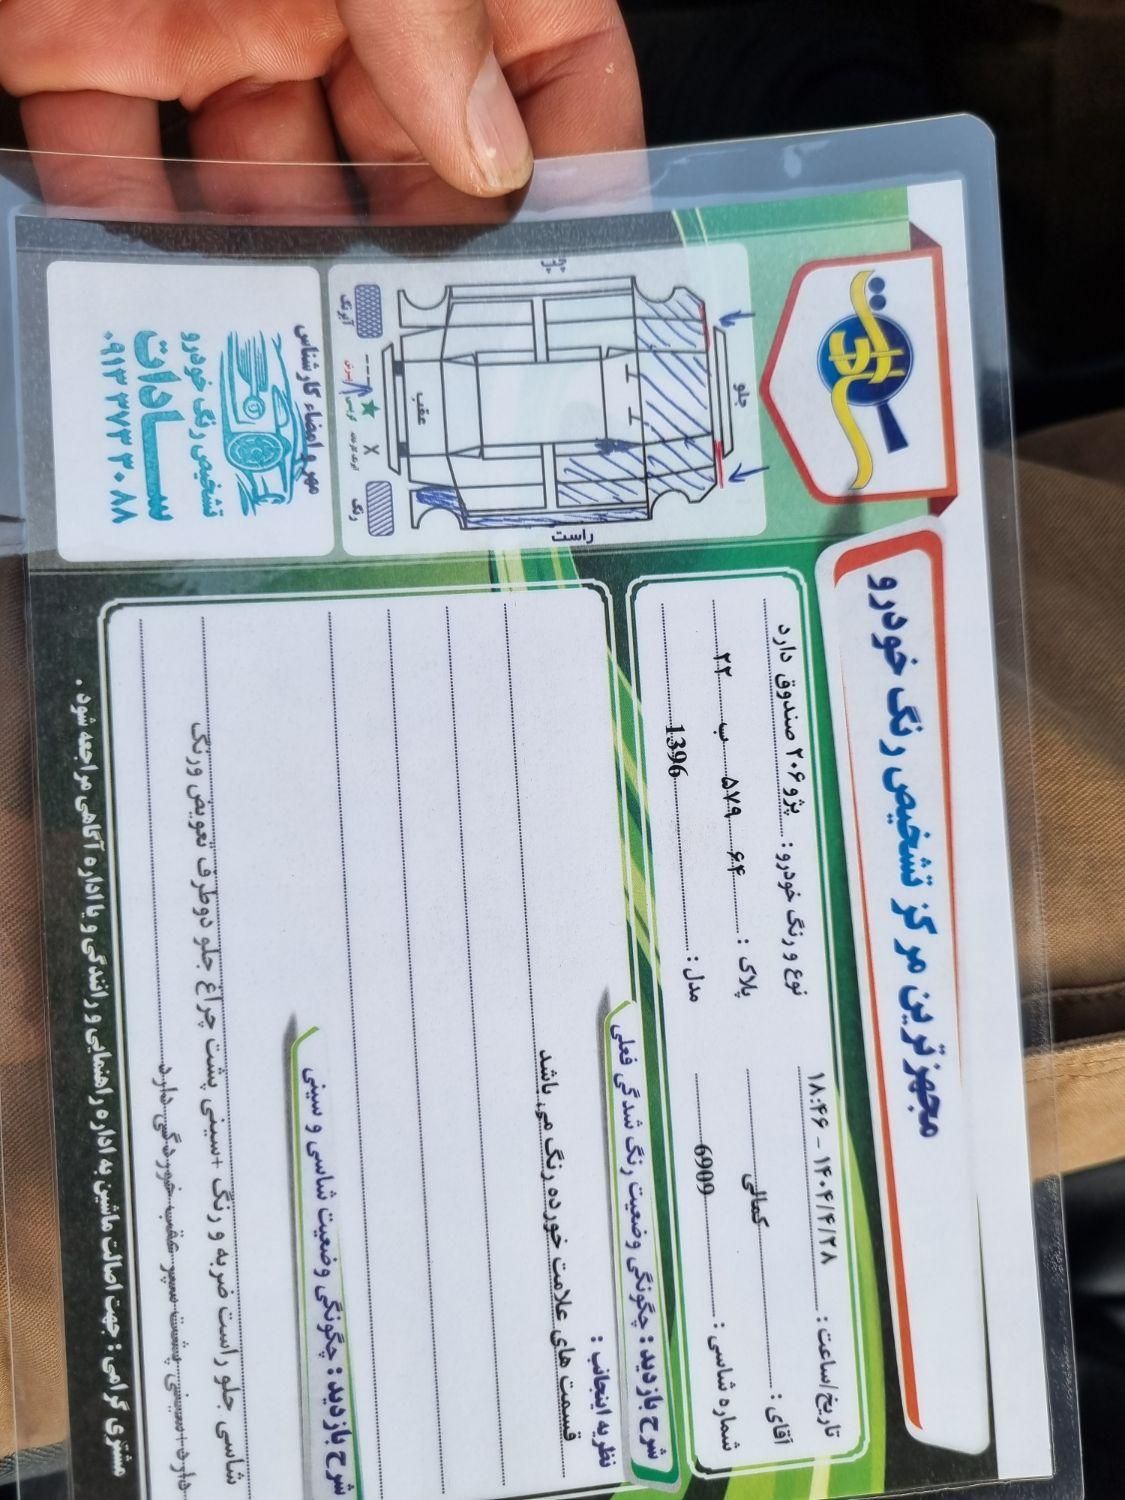 مجهزترین مرکز تشخیص رنگ خودرو
سادات
تاریخ/ساعت : ۱۴۰۴/۴/۲۸ - ۱۸:۴۶
نوع و رنگ خودرو : پژو ۲۰۶ صندوق دارد
آقای : کمالی
پلاک : ۶۴ ۵۷۹ ب ۲۲
شماره شاسی : 6909
مدل : 1396
شرح بازدید : چگونگی وضعیت رنگ شدگی فعلی
نظریه اینجانب :
قسمت های علامت خورده رنگ می باشد
شرح بازدید : چگونگی وضعیت شاسی و سینی
شاسی جلو راست ضربه و رنگ +سینی پشت چراغ جلو دوطرف تعویض ورنگ
دارد+سینی پشت سپر عقب خوردگی دارد
مشتری گرامی : جهت اصالت ماشین به اداره راهنمایی و رانندگی و یا اداره آگاهی مراجعه شود .
جلو
راست
عقب
رنگ
X
مهر و امضاء کارشناس
تشخیص رنگ خودرو
ســـادات
۰۹۱۳ ۳۷۳ ۳۰ ۸۸